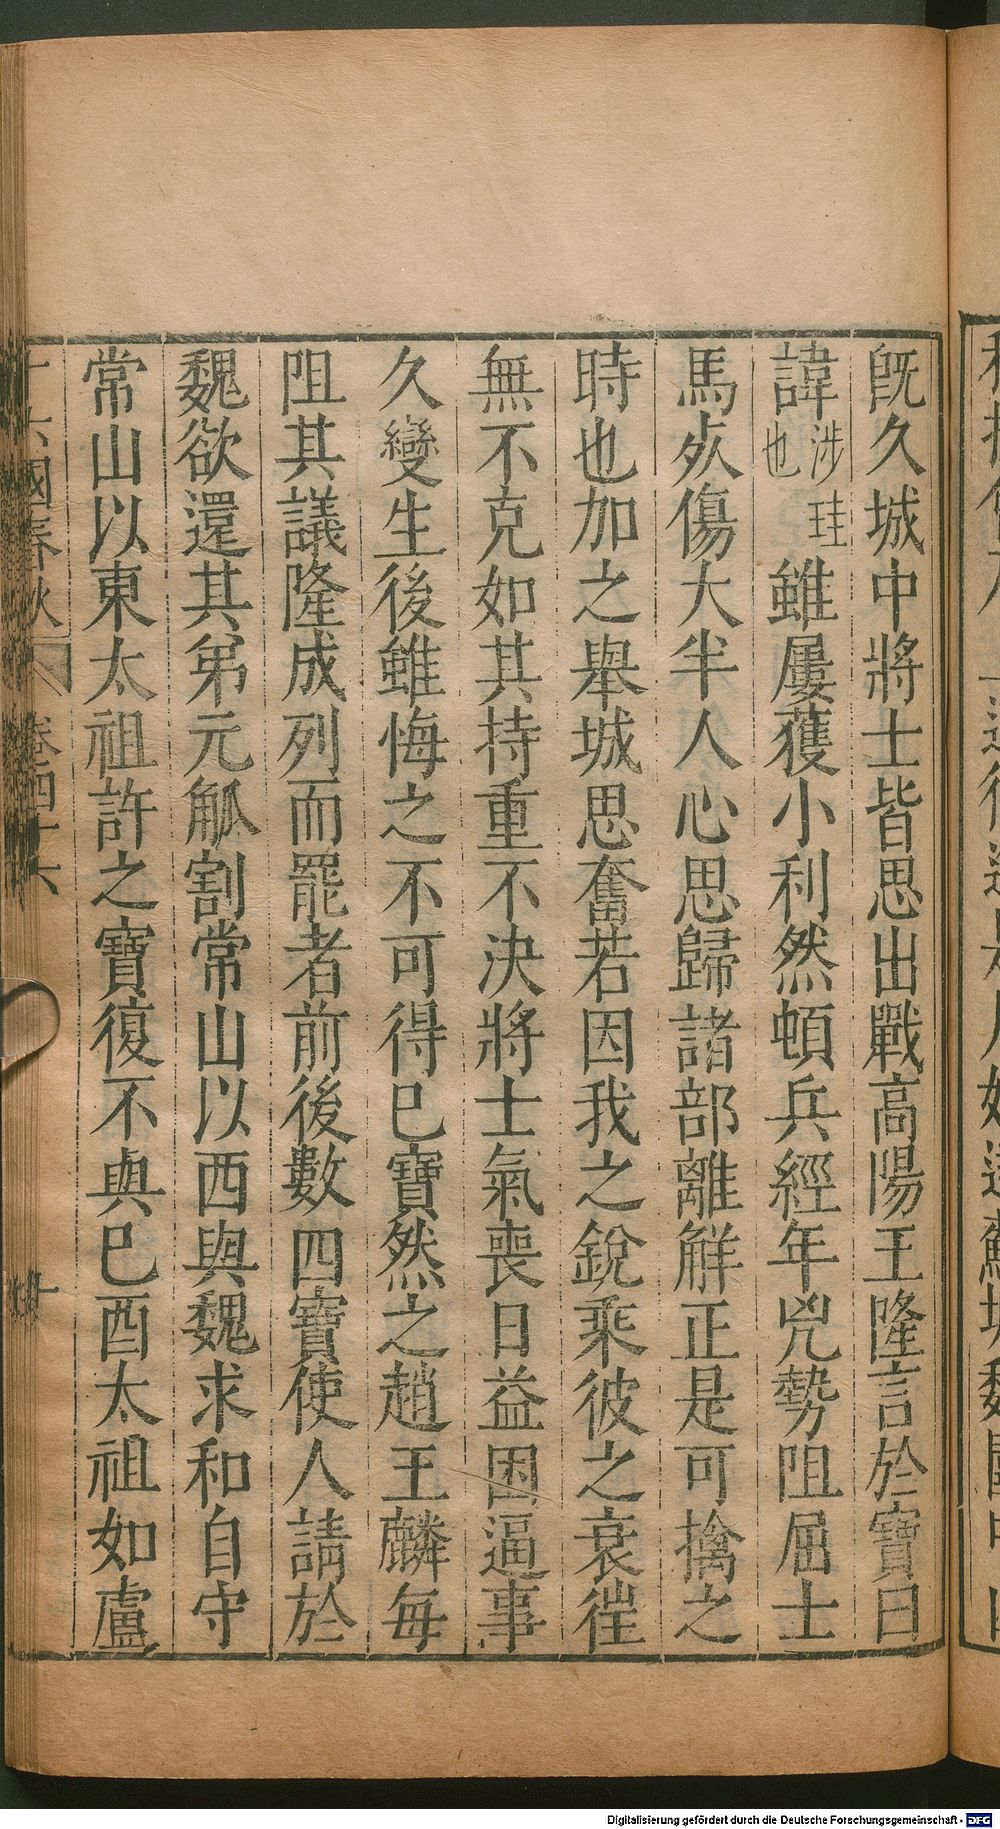 旣久城中將士皆思出戰高陽王隆言於寶曰
諱涉珪也雖屢獲小利然頓兵經年兇勢阻屈士
馬㱙傷大半人心思歸諸部離解正是可擒之
時也加之舉城思奮若因我之銳乘彼之衰徃
無不克如其持重不決將士氣喪日益困逼事
久變生後雖悔之不可得巳寶然之趙王麟每
阻其議隆成列而罷者前後數四寶使人請於
魏欲還其弟元觚割常山以西與魏求和自守
常山以東太祖許之寶復不與巳酉太祖如盧
十六國春秋 卷四十六 十
Digitalisierung gefördert durch die Deutsche Forschungsgemeinschaft - DFG